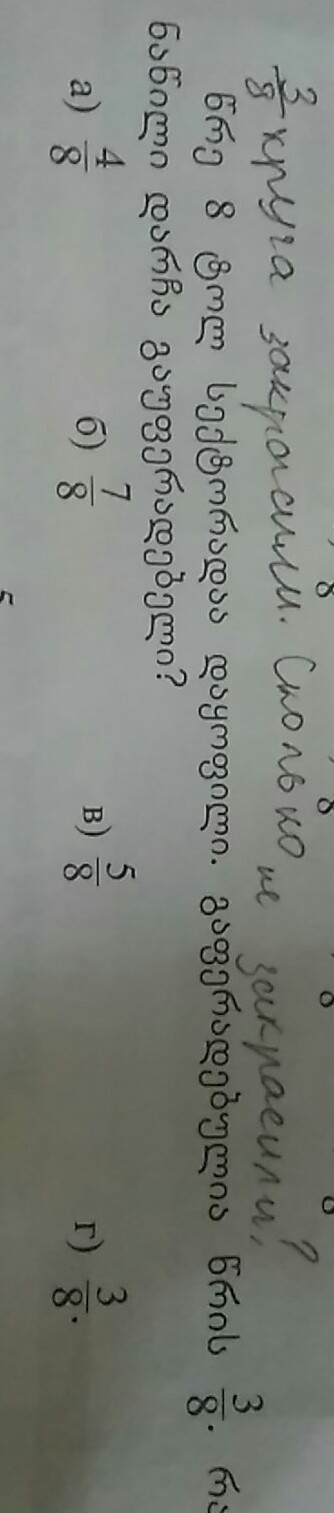 3/8 круга закрасили. Сколько не закрасили?
წრე 8 ტოლ სექტორადაა დაყოფილი. გაფერადებულია წრის 3/8. რა
ნაწილი დარჩა გაუფერადებელი?
а) 4/8 б) 7/8 в) 5/8 г) 3/8.